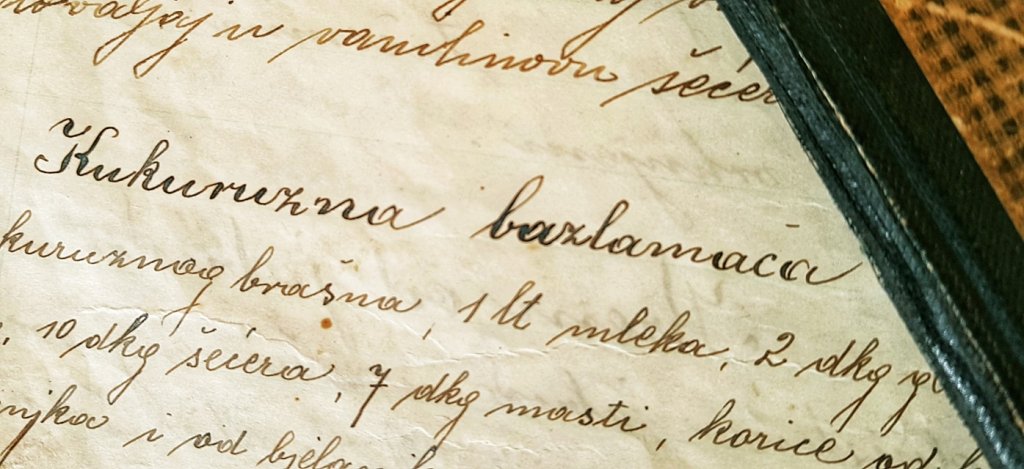 u vanilinovu šećer
Kukuruzna bazlamača
kuruznog brašna, 1 lt mleka, 2 dkg
10 dkg šećera, 7 dkg masti, korice od
njka i od bjelanjk